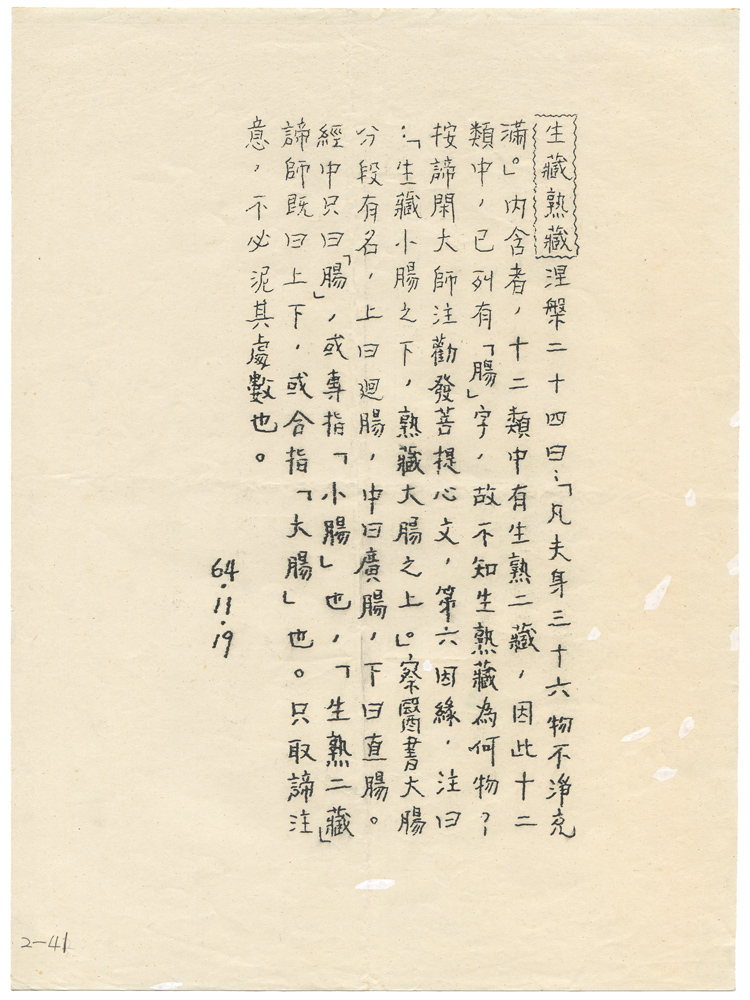 生藏熟藏 涅槃二十四曰：「凡夫身三十六物不淨充
滿。」內含者，十二類中有生熟二藏，因此十二
類中，已列有「腸」字，故不知生熟藏為何物？
按諦閑大師注勸發菩提心文，第六因緣，注曰
：「生藏小腸之下，熟藏大腸之上。」察醫書大腸
分段有名，上曰迴腸，中曰廣腸，下曰直腸。
經中只曰「腸」，或專指「小腸」也，「生熟二藏」
諦師既曰上下，或合指「大腸」也。只取諦注
意，不必泥其處數也。
64.11.19
2-41